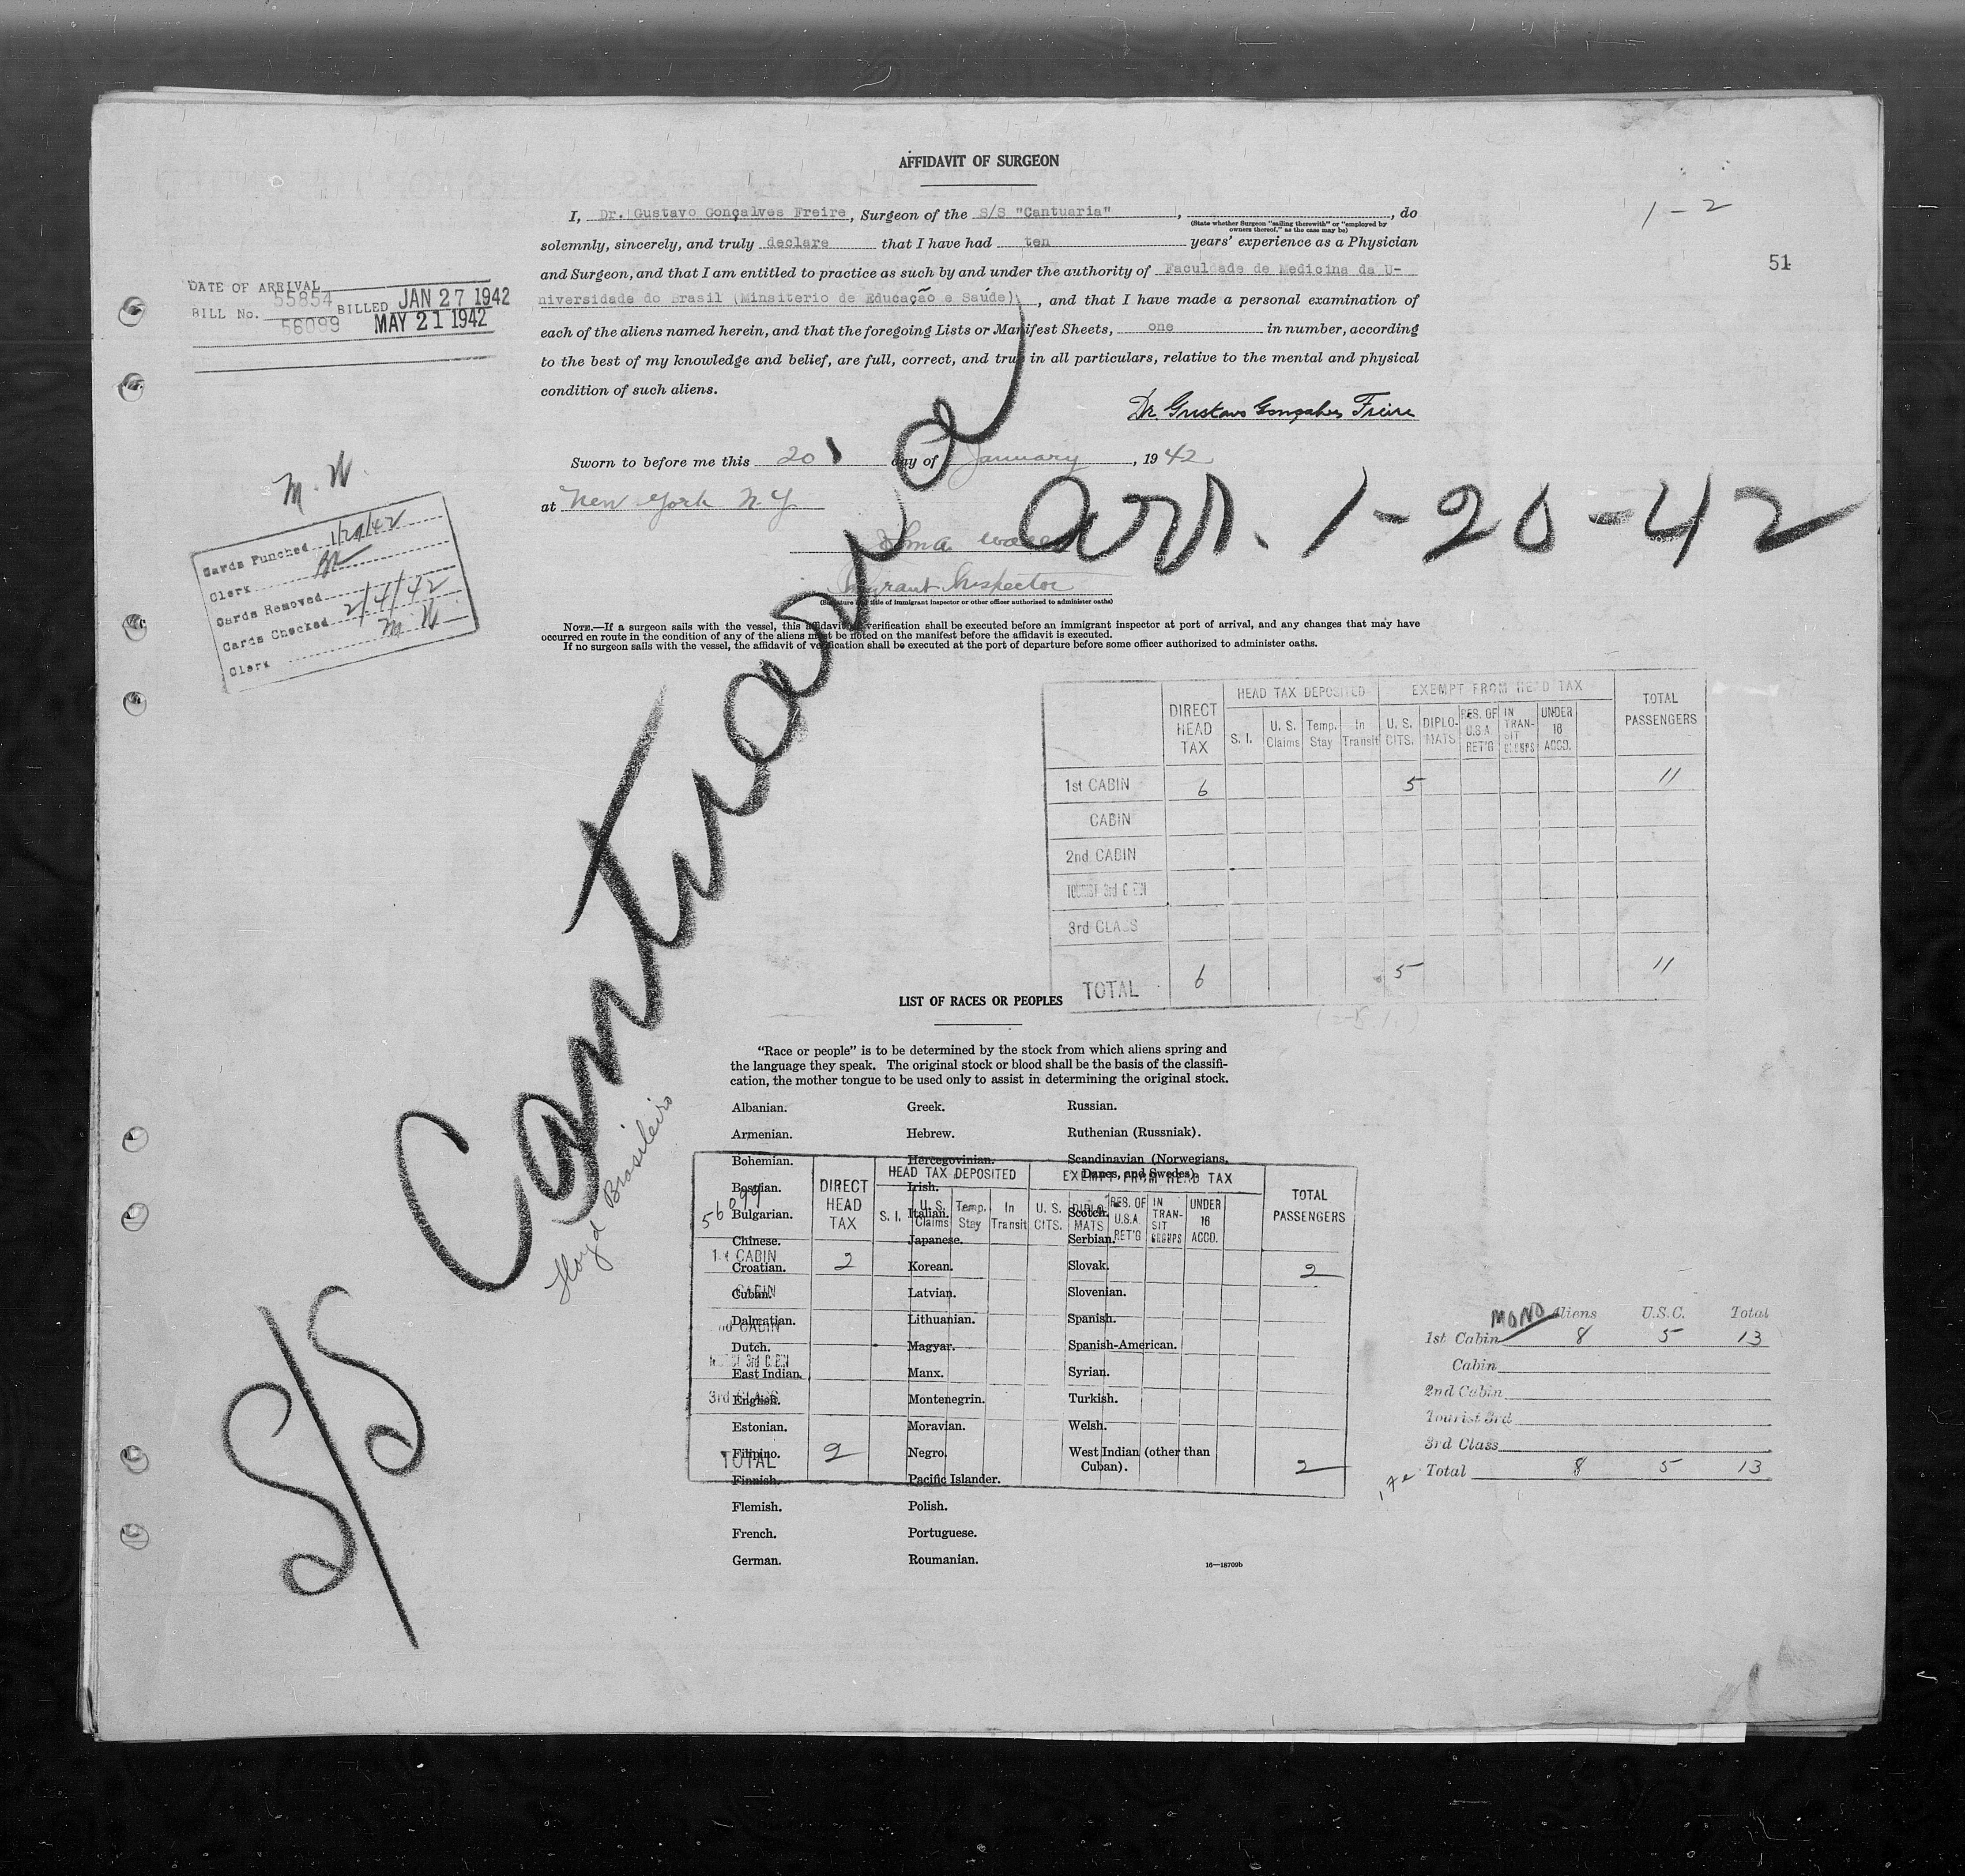 AFFIDAVIT OF SURGEON
1-2
51
I, Dr. Gustavo Gonçalves Freire, Surgeon of the S/S "Cantuaria", , do
(State whether Surgeon "sailing therewith" or "employed by
owners thereof," as the case may be)
solemnly, sincerely, and truly declare that I have had ten years' experience as a Physician
and Surgeon, and that I am entitled to practice as such by and under the authority of Faculdade de Medicina da U-
niversidade do Brasil (Minsiterio de Educação e Saúde), and that I have made a personal examination of
each of the aliens named herein, and that the foregoing Lists or Manifest Sheets, one in number, according
to the best of my knowledge and belief, are full, correct, and true in all particulars, relative to the mental and physical
condition of such aliens.
Dr. Gustavo Gonçalves Freire
DATE OF ARRIVAL
55854 BILLED JAN 27 1942
BILL No. 56099 MAY 21 1942
Sworn to before me this 20 day of January, 1942
at New York N.Y.
Immigrant Inspector
(Signature and title of immigrant inspector or other officer authorized to administer oaths)
M. W.
Cards Punched 1/29/42
Clerk
Cards Removed
Cards Checked 2/4/42
Clerk M W
arr. 1-20-42
S/S Cantuaria
Lloyd Brasileiro
NOTE.—If a surgeon sails with the vessel, this affidavit of verification shall be executed before an immigrant inspector at port of arrival, and any changes that may have
occurred en route in the condition of any of the aliens must be noted on the manifest before the affidavit is executed.
If no surgeon sails with the vessel, the affidavit of verification shall be executed at the port of departure before some officer authorized to administer oaths.
DIRECT HEAD TAX HEAD TAX DEPOSITED EXEMPT FROM HEAD TAX TOTAL PASSENGERS
S. I. U. S. Claims Temp. Stay In Transit U. S. CITS. DIPLO-MATS RES. OF U.S.A. RET'G IN TRAN-SIT UNDER 16 ACCD.
1st CABIN 6 5 11
CABIN
2nd CABIN
TOURIST 3rd CABIN
3rd CLASS
TOTAL 6 5 11
LIST OF RACES OR PEOPLES
"Race or people" is to be determined by the stock from which aliens spring and
the language they speak. The original stock or blood shall be the basis of the classifi-
cation, the mother tongue to be used only to assist in determining the original stock.
Albanian.
Armenian.
Bohemian.
Bosnian.
Bulgarian.
Chinese.
Croatian.
Cuban.
Dalmatian.
Dutch.
East Indian.
English.
Estonian.
Filipino.
Finnish.
Flemish.
French.
German.
Greek.
Hebrew.
Hercegovinian.
Irish.
Italian.
Japanese.
Korean.
Latvian.
Lithuanian.
Magyar.
Manx.
Montenegrin.
Moravian.
Negro.
Pacific Islander.
Polish.
Portuguese.
Roumanian.
Russian.
Ruthenian (Russniak).
Scandinavian (Norwegians,
Danes, and Swedes).
Scotch.
Serbian.
Slovak.
Slovenian.
Spanish.
Spanish-American.
Syrian.
Turkish.
Welsh.
West Indian (other than
Cuban).
16—18709b
56099
DIRECT HEAD TAX HEAD TAX DEPOSITED EXEMPT FROM HEAD TAX TOTAL PASSENGERS
S. I. U. S. Claims Temp. Stay In Transit U. S. CITS. DIPLO-MATS RES. OF U.S.A. RET'G IN TRAN-SIT UNDER 16 ACCD.
1st CABIN 2 2
CABIN
2nd CABIN
TOURIST 3rd CABIN
3rd CLASS
TOTAL 2 2
MONO Aliens U.S.C. Total
1st Cabin 8 5 13
Cabin
2nd Cabin
Tourist 3rd
3rd Class
Total 8 5 13